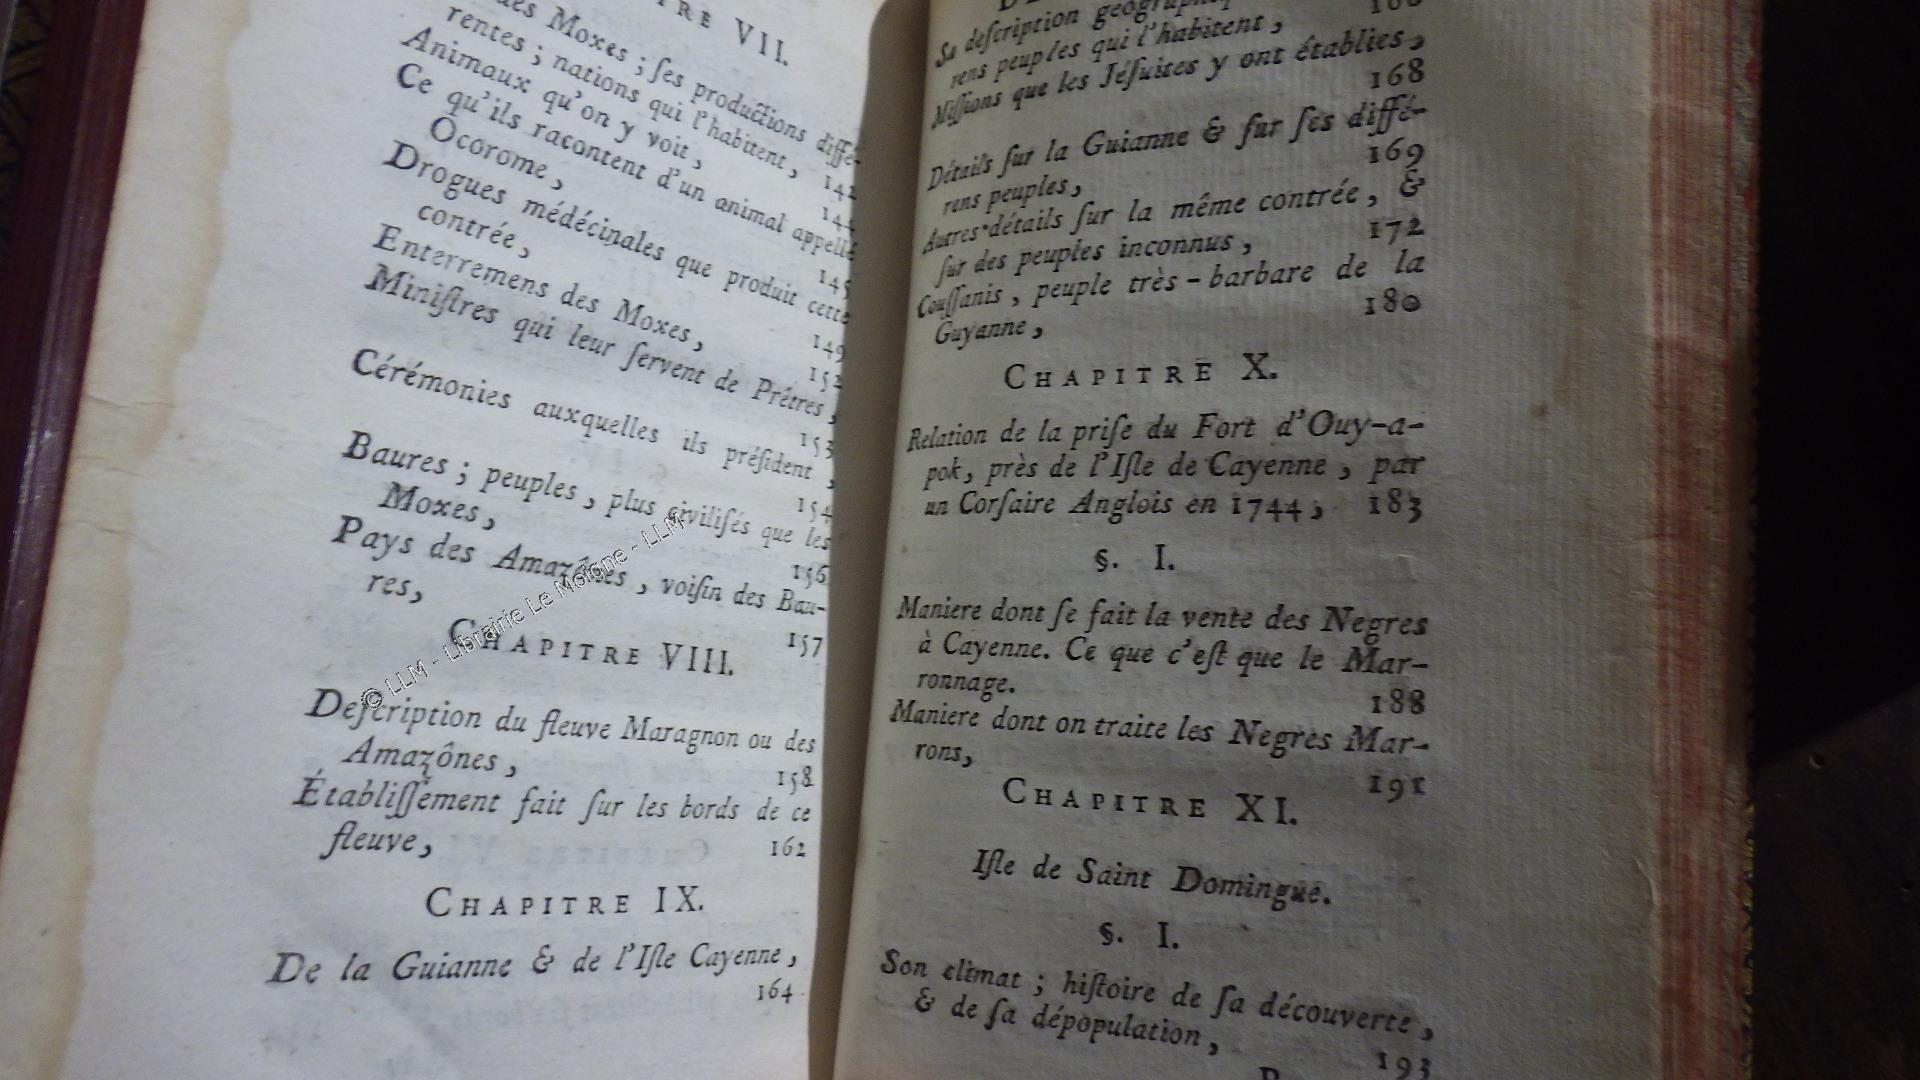 TRE VII.
des Moxes ; ſes productions diffé-
rentes ; nations qui l'habitent, 142
Animaux qu'on y voit, 144
Ce qu'ils racontent d'un animal appellé
Ocorome, 145
Drogues médécinales que produit cette
contrée, 149
Enterremens des Moxes, 152
Miniſtres qui leur ſervent de Prêtres,
153
Cérémonies auxquelles ils préſident,
154
Baures ; peuples, plus civiliſés que les
Moxes, 156
Pays des Amazônes, voiſin des Bau-
res, 157
CHAPITRE VIII.
Deſcription du fleuve Maragnon ou des
Amazônes, 158
Établiſſement fait ſur les bords de ce
fleuve, 162
CHAPITRE IX.
De la Guianne & de l'Iſle Cayenne,
164
© LLM - Librairie Le Moigne - LLM
Sa deſcription
rens peuples qui l'habitent,
Miſſions que les Jéſuites y ont établies,
168
Détails ſur la Guianne & ſur ſes diffé-
rens peuples, 169
Autres détails ſur la même contrée, &
ſur des peuples inconnus, 172
Couſſanis, peuple très-barbare de la
Guyanne, 180
CHAPITRE X.
Relation de la priſe du Fort d'Ouy-a-
pok, près de l'Iſle de Cayenne, par
un Corſaire Anglois en 1744, 183
§. I.
Maniere dont ſe fait la vente des Negres
à Cayenne. Ce que c'eſt que le Mar-
ronnage. 188
Maniere dont on traite les Negres Mar-
rons, 191
CHAPITRE XI.
Iſle de Saint Domingue.
§. I.
Son climat ; hiſtoire de ſa découverte,
& de ſa dépopulation, 193